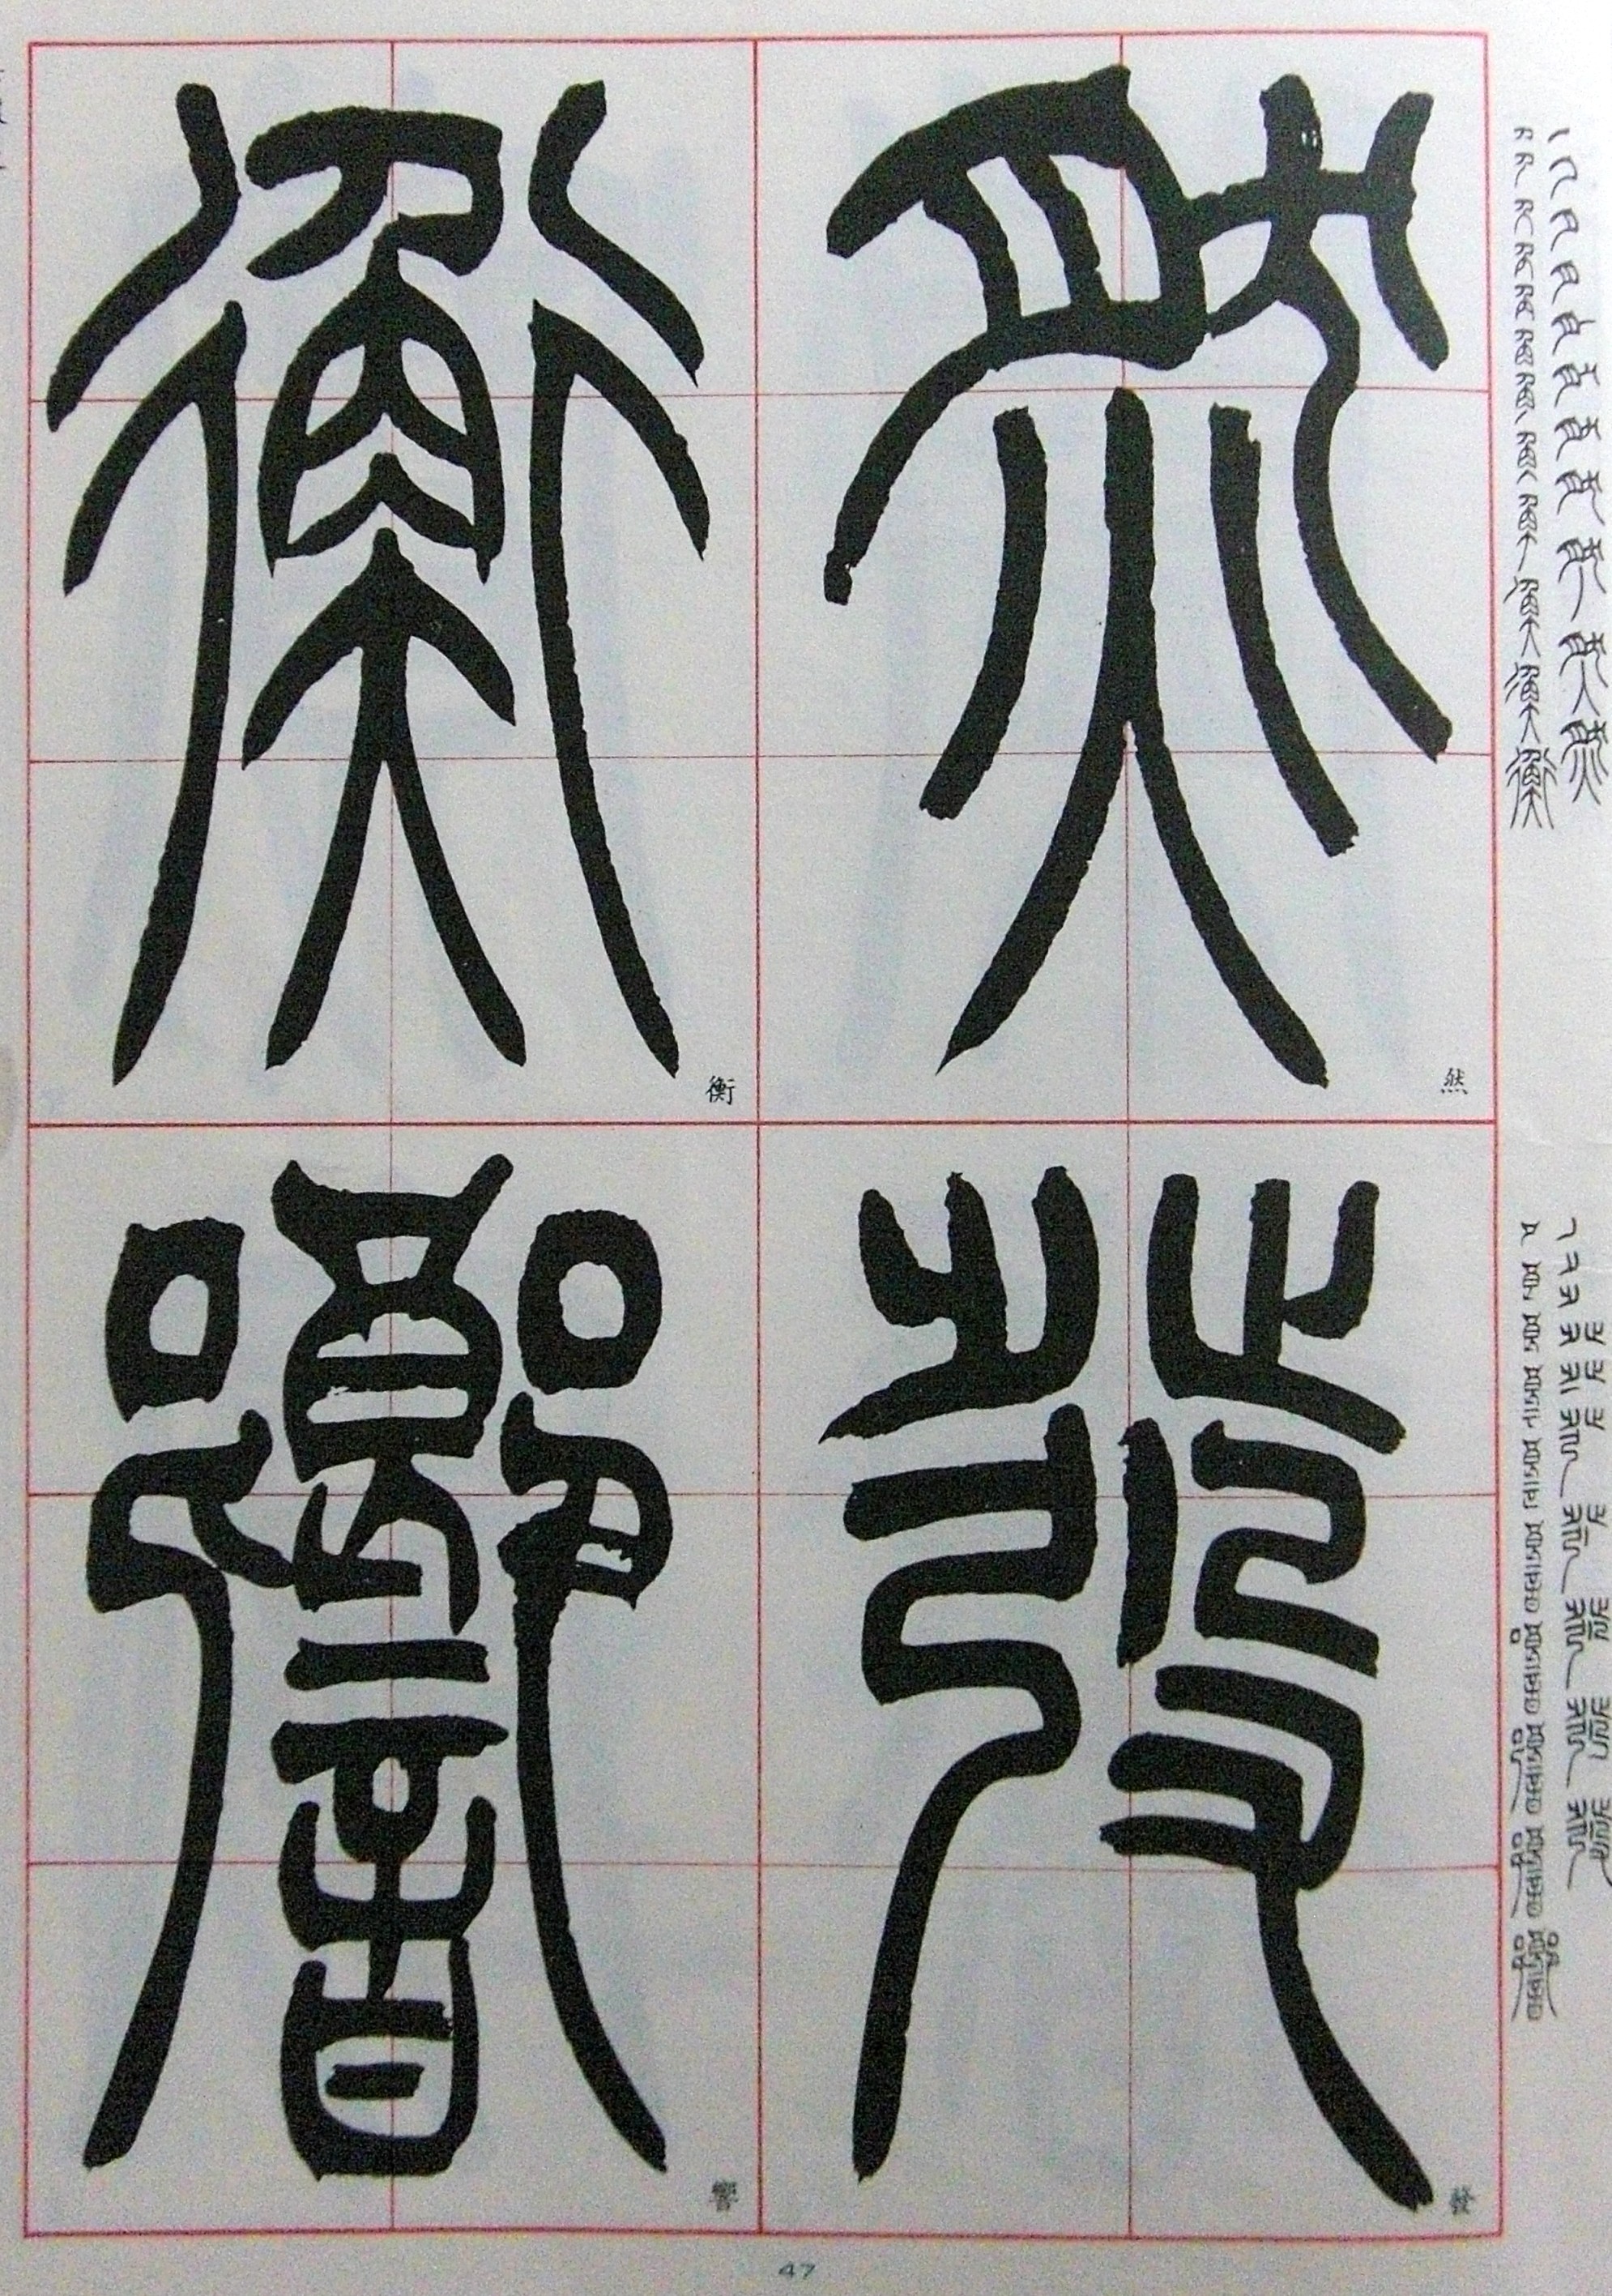 然
發
衡
響
47